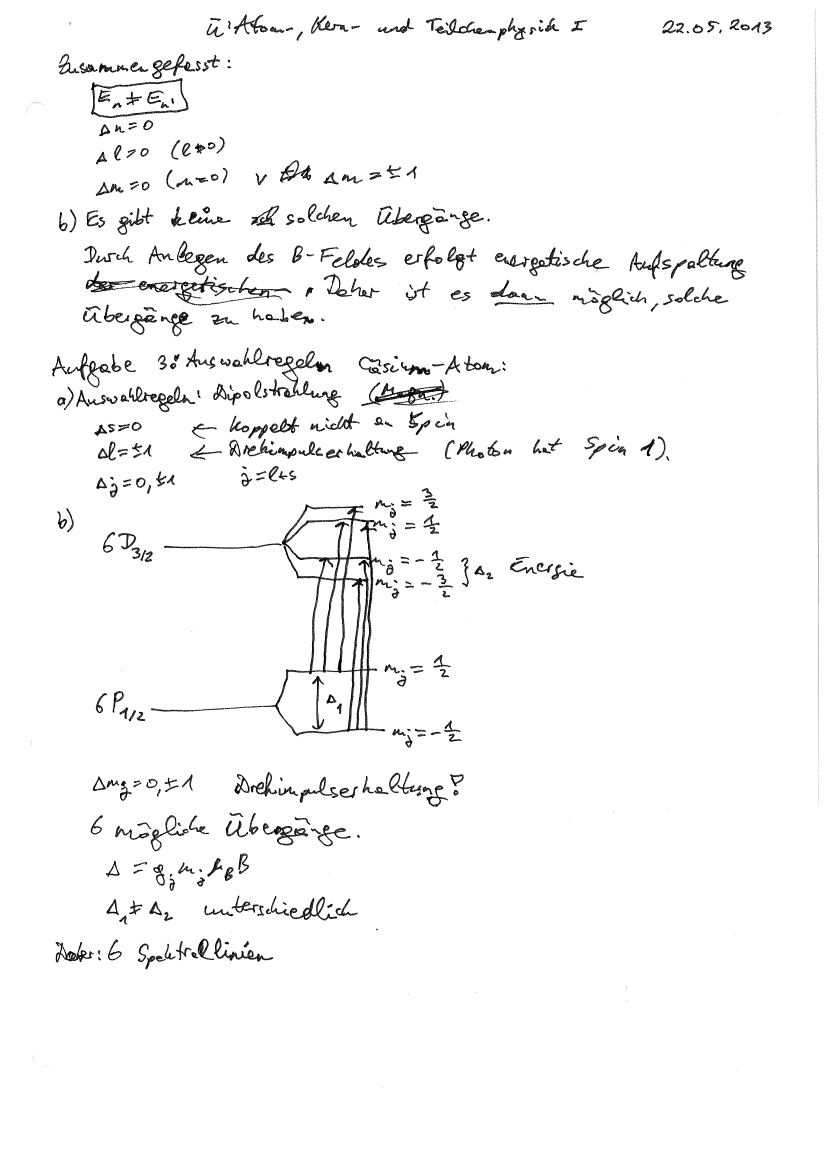 Ü: Atom-, Kern- und Teilchenphysik I 22.05.2013
Zusammengefasst:
E_n ≠ E_n'
Δn=0
Δl>0 (l≠0)
Δm=0 (m=0) ∨ Δm=±1
b) Es gibt keine solchen Übergänge.
Durch Anlegen des B-Feldes erfolgt energetische Aufspaltung
der energetischen. Daher ist es dann möglich, solche
Übergänge zu haben.
Aufgabe 3: Auswahlregeln Cäsium-Atom:
a) Auswahlregeln: Dipolstrahlung (Magn.)
Δs=0 ← koppelt nicht an Spin
Δl=±1 ← Drehimpulserhaltung (Photon hat Spin 1).
Δj=0,±1 j=l+s
b)
m_j = 3/2
m_j = 1/2
6D_3/2
m_j = -1/2
m_j = -3/2 } Δ_2 Energie
m_j = 1/2
6P_1/2 Δ_1
m_j = -1/2
Δm_j=0,±1 Drehimpulserhaltung?
6 mögliche Übergänge.
Δ = g_j m_j μ_B B
Δ_1 ≠ Δ_2 unterschiedlich
Daher: 6 Spektrallinien